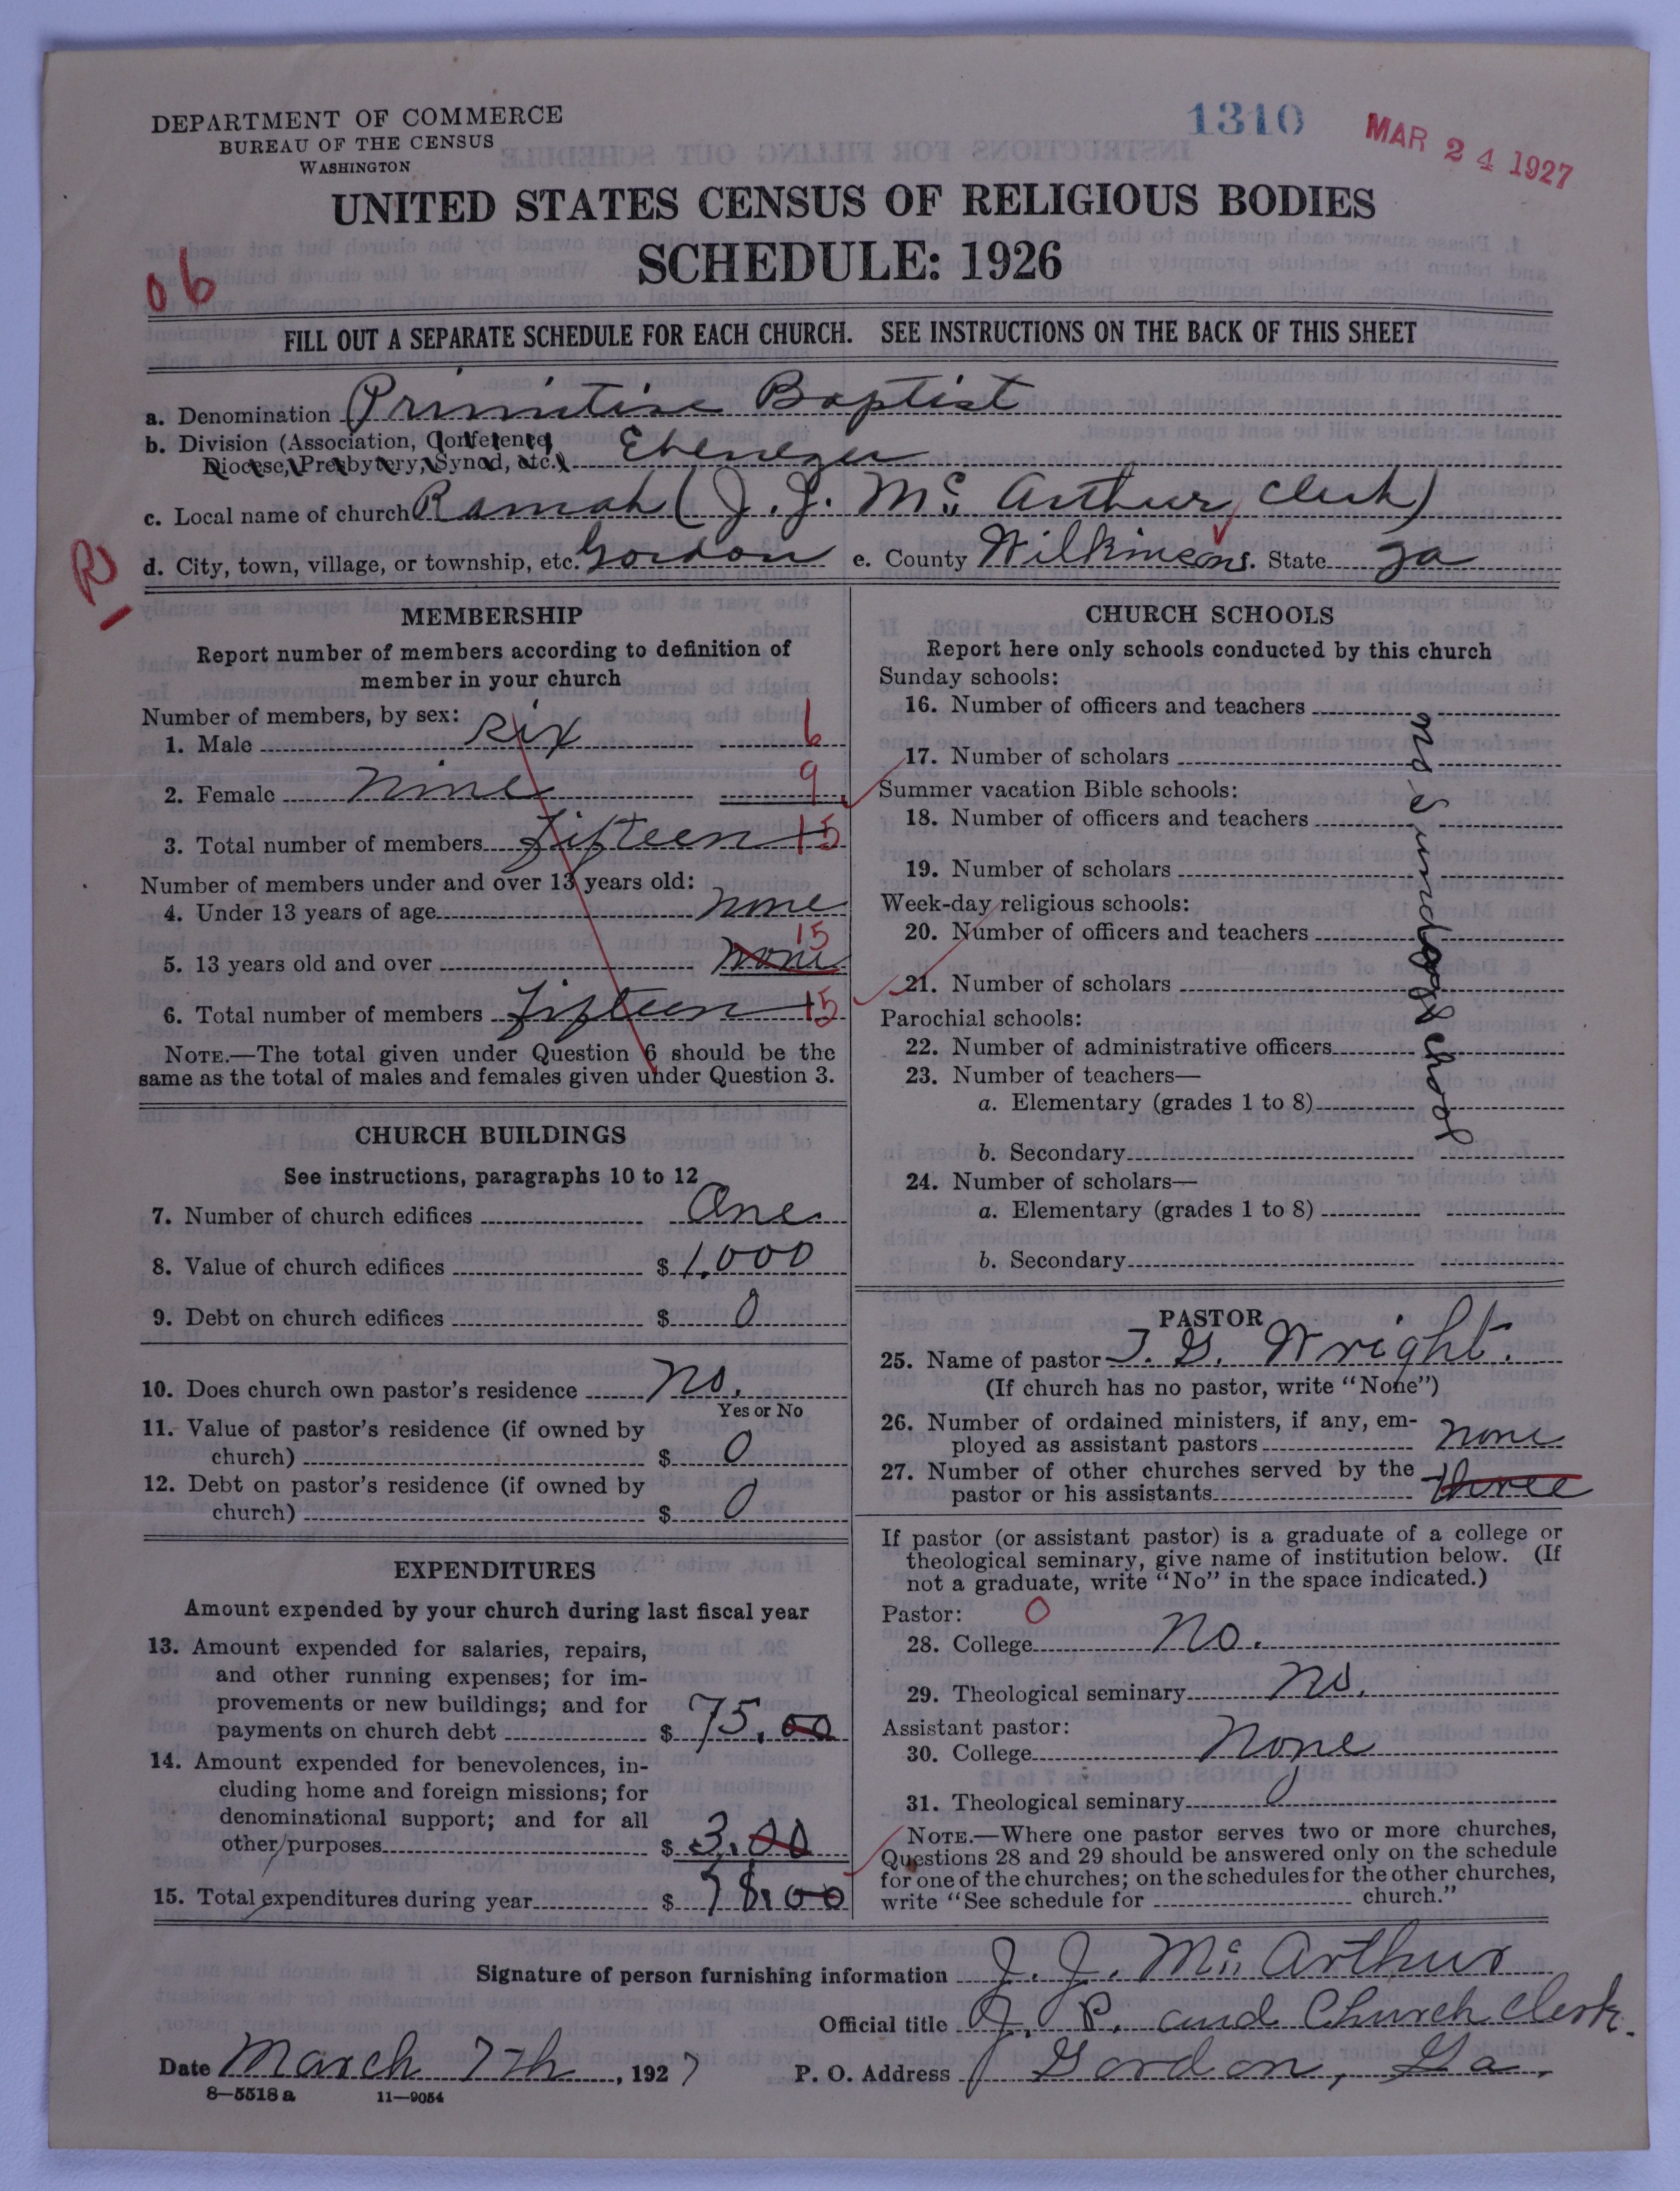 DEPARTMENT OF COMMERCE
BUREAU OF THE CENSUS
WASHINGTON
1310
MAR 24 1927
UNITED STATES CENSUS OF RELIGIOUS BODIES
SCHEDULE: 1926
06
FILL OUT A SEPARATE SCHEDULE FOR EACH CHURCH. SEE INSTRUCTIONS ON THE BACK OF THIS SHEET
a. Denomination Primitive Baptist
b. Division (Association, Conference,
Diocese, Presbytery, Synod, etc.) Ebenezer
c. Local name of church Ramah (J. J. Mc Arthur, Clerk)
R
d. City, town, village, or township, etc. Gordon e. County Wilkinson f. State Ga
MEMBERSHIP
Report number of members according to definition of
member in your church
Number of members, by sex:
1. Male six 6
2. Female Nine 9
3. Total number of members Fifteen 15
Number of members under and over 13 years old:
4. Under 13 years of age none
15
5. 13 years old and over none
6. Total number of members Fifteen 15
NOTE.—The total given under Question 6 should be the
same as the total of males and females given under Question 3.
CHURCH BUILDINGS
See instructions, paragraphs 10 to 12
7. Number of church edifices One
8. Value of church edifices $ 1,000
9. Debt on church edifices $ 0
10. Does church own pastor's residence No.
Yes or No
11. Value of pastor's residence (if owned by
church) $ 0
12. Debt on pastor's residence (if owned by
church) $ 0
EXPENDITURES
Amount expended by your church during last fiscal year
13. Amount expended for salaries, repairs,
and other running expenses; for im-
provements or new buildings; and for
payments on church debt $ 75.00
14. Amount expended for benevolences, in-
cluding home and foreign missions; for
denominational support; and for all
other purposes $ 3.00
15. Total expenditures during year $ 78.00
CHURCH SCHOOLS
Report here only schools conducted by this church
Sunday schools:
16. Number of officers and teachers
17. Number of scholars
Summer vacation Bible schools:
18. Number of officers and teachers
19. Number of scholars
Week-day religious schools:
20. Number of officers and teachers
21. Number of scholars
Parochial schools:
22. Number of administrative officers
23. Number of teachers—
a. Elementary (grades 1 to 8)
b. Secondary
24. Number of scholars—
a. Elementary (grades 1 to 8)
b. Secondary
no Sunday School
PASTOR
25. Name of pastor J. G. Wright.
(If church has no pastor, write "None")
26. Number of ordained ministers, if any, em-
ployed as assistant pastors none
27. Number of other churches served by the
pastor or his assistants three
If pastor (or assistant pastor) is a graduate of a college or
theological seminary, give name of institution below. (If
not a graduate, write "No" in the space indicated.)
Pastor: 0
28. College No.
29. Theological seminary No.
Assistant pastor:
30. College None
31. Theological seminary 0
NOTE.—Where one pastor serves two or more churches,
Questions 28 and 29 should be answered only on the schedule
for one of the churches; on the schedules for the other churches,
write "See schedule for church."
Signature of person furnishing information J. J. Mc Arthur
Official title J. P. and Church Clerk.
Date March 7th, 1927 P. O. Address Gordon, Ga.
8—5518 a 11—9054